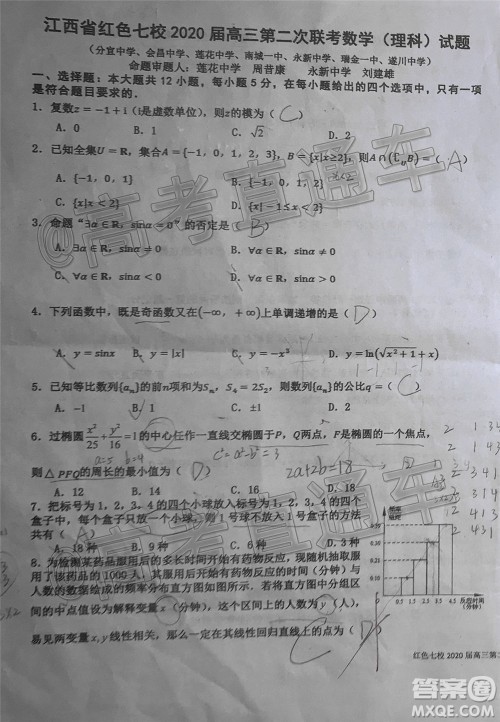 江西省红色七校 2020 届高三第二次联考数学（理科）试题
（分宜中学、会昌中学、莲花中学、南城一中、永新中学、瑞金一中、遂川中学）
命题审题人：莲花中学 周昔康 永新中学 刘建雄
一、选择题：本大题共 12 小题，每小题 5 分，在每小题给出的四个选项中，只有一项
是符合题目要求的.
1．复数z=-1+i（i是虚数单位），则z的模为（ C ）
A．0 B．1 C．√2 D．2
2．已知全集U=R，集合A={-1，0，1，2，3}，B={x|x≥2}，则A∩(∁UB)=（ A ）
A．{-1，0，1} B．{-1，0，1，2}
C．{x|x<2} D．{x|-1≤x<2}
3．命题“∃α∈R，sinα=0”的否定是（ B ）
A．∃α∈R，sinα≠0 B．∀α∈R，sinα≠0
C．∀α∈R，sinα<0 D．∀α∈R，sinα>0
4．下列函数中，既是奇函数又在(-∞，+∞)上单调递增的是（ D ）
A．y=sinx B．y=|x| C．y=-x³ D．y=ln(√(x²+1)+x)
5．已知等比数列{aₙ}的前n项和为Sₙ，S₄=2S₂，则数列{aₙ}的公比q=（ C ）
A．-1 B．1 C．±1 D．2
6．过椭圆x²/25+y²/16=1的中心任作一直线交椭圆于P，Q两点，F是椭圆的一个焦点，
a=5 b=4 c=3
则△PFQ的周长的最小值为（ D ） 2a+2b=18
A．12 B．14 C．16 D．18
7．把标号为1，2，3，4 的四个小球放入标号为1，2，3，4 的四个
盒子中，每个盒子只放一个小球，则 1 号球不放入 1 号盒子的方法
共有（ A ）
A．18 种 B．9 种 C．6 种 D．3 种
8．为检测某药品服用后的多长时间开始有药物反应，现随机抽取服
用了该药品的 1000 人，其服用后开始有药物反应的时间（分钟）与
人数的数据绘成的频率分布直方图如图所示．若将直方图中分组区
间的中点值设为解释变量 x（分钟），这个区间上的人数为 y（人），
易见两变量x，y线性相关，那么一定在其线性回归直线上的点为（
频率
组距
0.5 1.5 2.5 3.5 4.5 反应时间
（分钟）
红色七校 2020 届高三第二
高考直通车
高考直通车
答案圈
MXQE.COM